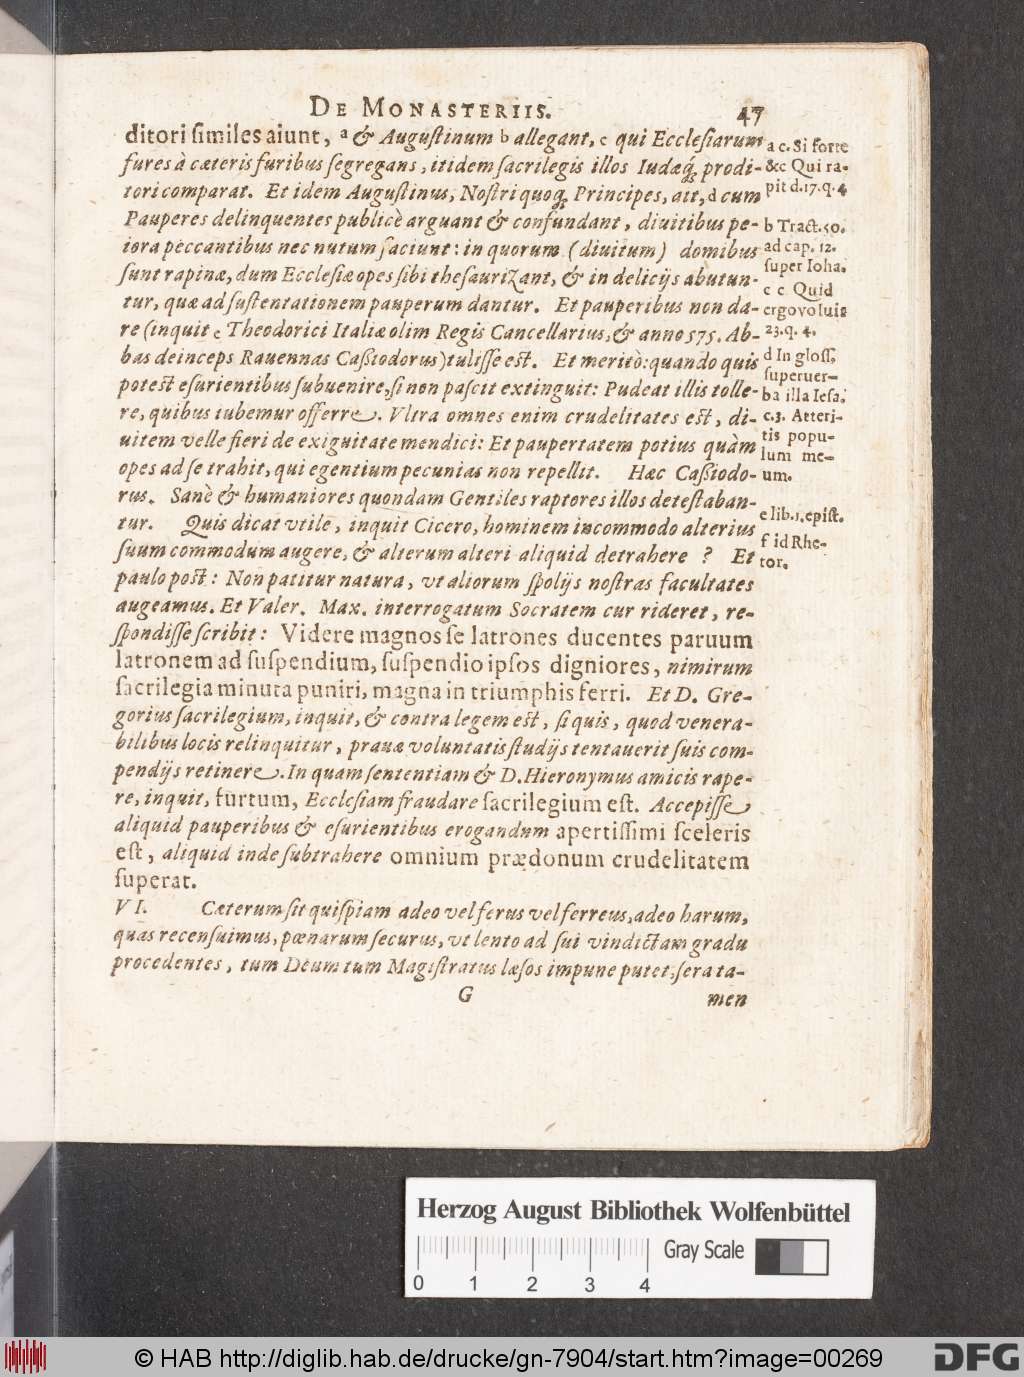 DE MONASTERIIS. 47
ditori similes aiunt, a & Augustinum b allegant, c qui Ecclesiarum
fures à cæteris furibus segregans, itidem sacrilegis illos Iudæq́; prodi-
tori comparat. Et idem Augustinus, Nostri quoq; Principes, ait, d cum
Pauperes delinquentes publicè arguant & confundant, diuitibus pe-
iora peccantibus nec nutum faciunt: in quorum (diuitum) domibus
sunt rapinæ, dum Ecclesiæ opes sibi thesaurizant, & in delicijs abutun-
tur, quæ ad sustentationem pauperum dantur. Et pauperibus non da-
re (inquit e Theodorici Italiæ olim Regis Cancellarius, & anno 575. Ab-
bas deinceps Rauennas Cassiodorus) tulisse est. Et meritò: quando quis
potest esurientibus subuenire, si non pascit extinguit: Pudeat illis tolle-
re, quibus iubemur offerre. Vltra omnes enim crudelitates est, di-
uitem velle fieri de exiguitate mendici: Et paupertatem potius quàm
opes ad se trahit, qui egentium pecunias non repellit. Hæc Cassiodo-
rus. Sanè & humaniores quondam Gentiles raptores illos detestaban-
tur. Quis dicat vtile, inquit Cicero, hominem incommodo alterius
suum commodum augere, & alterum alteri aliquid detrahere? Et
paulo post: Non patitur natura, vt aliorum spolijs nostras facultates
augeamus. Et Valer. Max. interrogatum Socratem cur rideret, re-
spondisse scribit: Videre magnos se latrones ducentes paruum
latronem ad suspendium, suspendio ipsos digniores, nimirum
sacrilegia minuta puniri, magna in triumphis ferri. Et D. Gre-
gorius sacrilegium, inquit, & contra legem est, si quis, quod venera-
bilibus locis relinquitur, prauæ voluntatis studijs tentauerit suis com-
pendijs retinere. In quam sententiam & D. Hieronymus amicis rape-
re, inquit, furtum, Ecclesiam fraudare sacrilegium est. Accepisse
aliquid pauperibus & esurientibus erogandum apertissimi sceleris
est, aliquid inde subtrahere omnium prædonum crudelitatem
superat.
VI. Cæterum sit quispiam adeo vel ferus vel ferreus, adeo harum,
quas recensuimus, pœnarum securus, vt lento ad sui vindictam gradu
procedentes, tum Deum tum Magistratus læsos impune putet, sera ta-
G men
a c. Si forte
&c Qui ra-
pit d. 17. q. 4
b Tract. 50.
ad cap. 12.
super Ioha.
c c. Quid
ergo voluis
23. q. 4.
d In gloss,
super ver-
ba illa Iesa.
c. 3. Atteri-
tis popu-
lum me-
um.
e lib. 1. epist.
f id Rhe-
tor.
Herzog August Bibliothek Wolfenbüttel
Gray Scale
0 1 2 3 4
© HAB http://diglib.hab.de/drucke/gn-7904/start.htm?image=00269
DFG